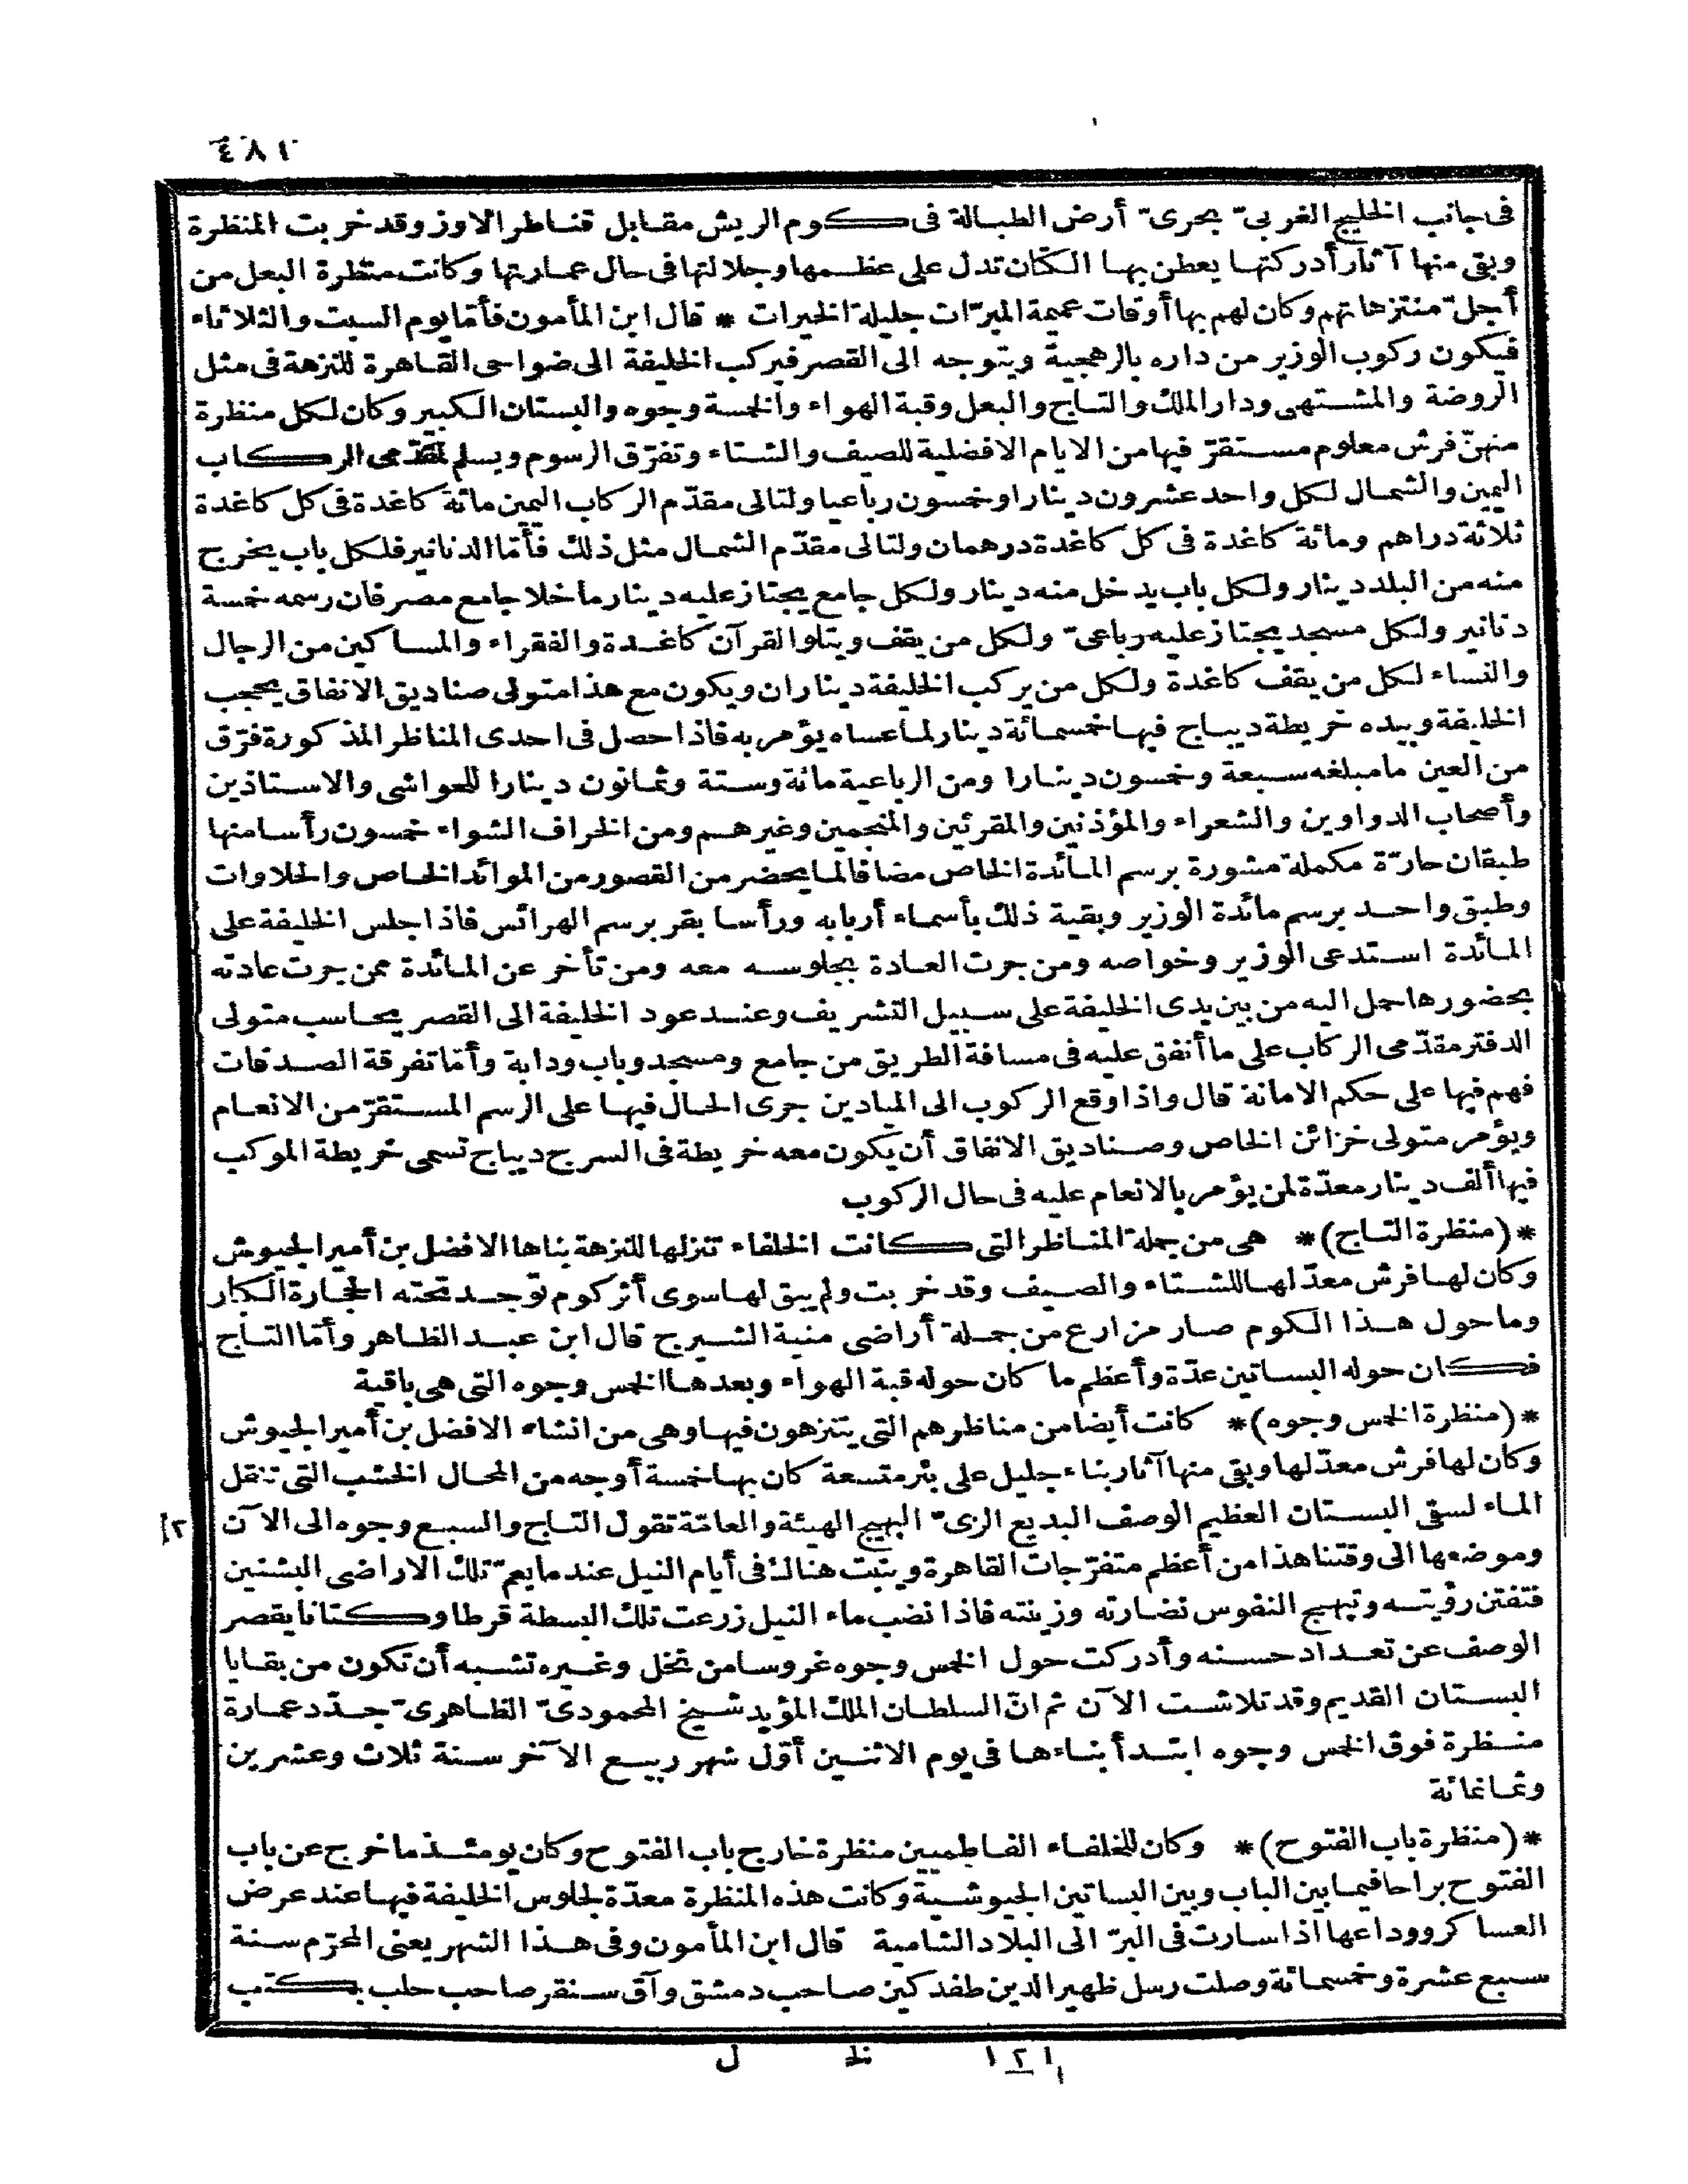 ٤٨١
فى جانب الخليج الغربىّ بحرىّ أرض الطبالة فى كوم الريش مقابل قناطر الاوز وقد خربت المنظرة
وبقى منها آثار أدركتها يعطن بها الكتان تدل على عظمها وجلالتها فى حال عمارتها وكانت منظرة البعل من
أجلّ منتزهاتهم وكان لهم بها أوقات عميمة المبرّات جليلة الخيرات * قال ابن المأمون فأمّا يوم السبت والثلاثاء
فيكون ركوب الوزير من داره بالرهجية ويتوجه الى القصر فيركب الخليفة الى ضواحى القاهرة للنزهة فى مثل
الروضة والمشتهى ودار الملك والتاج والبعل وقبة الهواء والخمسة وجوه والبستان الكبير وكان لكل منظرة
منهنّ فرش معلوم مستقرّ فيها من الايام الافضلية للصيف والشتاء وتفرّق الرسوم ويسلم لمقدّمى الركاب
اليمين والشمال لكل واحد عشرون دينارا وخمسون رباعيا ولتالى مقدّم الركاب اليمين مائة كاغدة فى كل كاغدة
ثلاثة دراهم ومائة كاغدة فى كل كاغدة درهمان ولتالى مقدّم الشمال مثل ذلك فأمّا الدنانير فلكل باب يخرج
منه من البلد دينار ولكل باب يدخل منه دينار ولكل جامع يجتاز عليه دينار ما خلا جامع مصر فان رسمه خمسة
دنانير ولكل مسجد يجتاز عليه رباعىّ ولكل من يقف ويتلو القرآن كاغدة والفقراء والمساكين من الرجال
والنساء لكل من يقف كاغدة ولكل من يركب الخليفة ديناران ويكون مع هذا متولى صناديق الانفاق يحجب
الخليفة وبيده خريطة ديباج فيها خمسمائة دينار لما عساه يؤمر به فاذا حصل فى احدى المناظر المذكورة فرّق
من العين ما مبلغه سبعة وخمسون دينارا ومن الرباعية مائة وستة وثمانون دينارا للحواشى والاستاذين
وأصحاب الدواوين والشعراء والمؤذنين والمقرئين والمنجمين وغيرهم ومن الخراف الشواء خمسون رأسا منها
طبقان حارّة مكملة مشورة برسم المائدة الخاص مضافا لما يحضر من القصور من الموائد الخاص والحلاوات
وطبق واحد برسم مائدة الوزير وبقية ذلك بأسماء أربابه ورأسا بقر برسم الهرائس فاذا جلس الخليفة على
المائدة استدعى الوزير وخواصه ومن جرت العادة بجلوسه معه ومن تأخر عن المائدة ممن جرت عادته
بحضورها حمل اليه من بين يدى الخليفة على سبيل التشريف وعند عود الخليفة الى القصر يحاسب متولى
الدفتر مقدّمى الركاب على ما أنفق عليه فى مسافة الطريق من جامع ومسجد وباب ودابة وأمّا تفرقة الصدقات
فهم فيها على حكم الامانة قال واذا وقع الركوب الى الميادين جرى الحال فيها على الرسم المستقرّ من الانعام
ويؤمر متولى خزائن الخاص وصناديق الانفاق أن يكون معه خريطة فى السرج ديباج تسمى خريطة الموكب
فيها ألف دينار معدّة لمن يؤمر بالانعام عليه فى حال الركوب
* (منظرة التاج) * هى من جملة المناظر التى كانت الخلفاء تنزلها للنزهة بناها الافضل بن أمير الجيوش
وكان لها فرش معدّ لها للشتاء والصيف وقد خربت ولم يبق لها سوى أثر كوم توجد تحته الحجارة الكبار
وما حول هذا الكوم صار مزارع من جملة أراضى منية الشيرج قال ابن عبد الظاهر وأمّا التاج
فكان حوله البساتين عدّة وأعظم ما كان حوله قبة الهواء وبعدها الخمس وجوه التى هى باقية
* (منظرة الخمس وجوه) * كانت أيضا من مناظرهم التى يتنزهون فيها وهى من انشاء الافضل بن أمير الجيوش
وكان لها فرش معدّ لها وبقى منها آثار بناء جليل على بئر متسعة كان بها خمسة أوجه من المحال الخشب التى تنقل
الماء لسقى البستان العظيم الوصف البديع الزىّ البهيج الهيئة والعامّة تقول التاج والسبع وجوه الى الآن
وموضعها الى وقتنا هذا من أعظم متفرّجات القاهرة وينبت هنالك فى أيام النيل عند ما يعمّ تلك الاراضى البشنين
فتفتن رؤيته وتبهج النفوس نضارته وزينته فاذا نضب ماء النيل زرعت تلك البسطة قرطا وكتانا يقصر
الوصف عن تعداد حسنه وأدركت حول الخمس وجوه غروسا من نخل وغيره تشبه أن تكون من بقايا
البستان القديم وقد تلاشت الآن ثم انّ السلطان الملك المؤيد شيخ المحمودىّ الظاهرىّ جدّد عمارة
منظرة فوق الخمس وجوه ابتدأ بناءها فى يوم الاثنين أوّل شهر ربيع الآخر سنة ثلاث وعشرين
وثمانمائة
* (منظرة باب الفتوح) * وكان للخلفاء الفاطميين منظرة خارج باب الفتوح وكان يومئذ ما خرج عن باب
الفتوح براحا فيما بين الباب وبين البساتين الجيوشية وكانت هذه المنظرة معدّة لجلوس الخليفة فيها عند عرض
العساكر ووداعها اذا سارت فى البرّ الى البلاد الشامية قال ابن المأمون وفى هذا الشهر يعنى المحرّم سنة
سبع عشرة وخمسمائة وصلت رسل ظهير الدين طفدكين صاحب دمشق وآق سنقر صاحب حلب بكتب
١٢١ ط ل